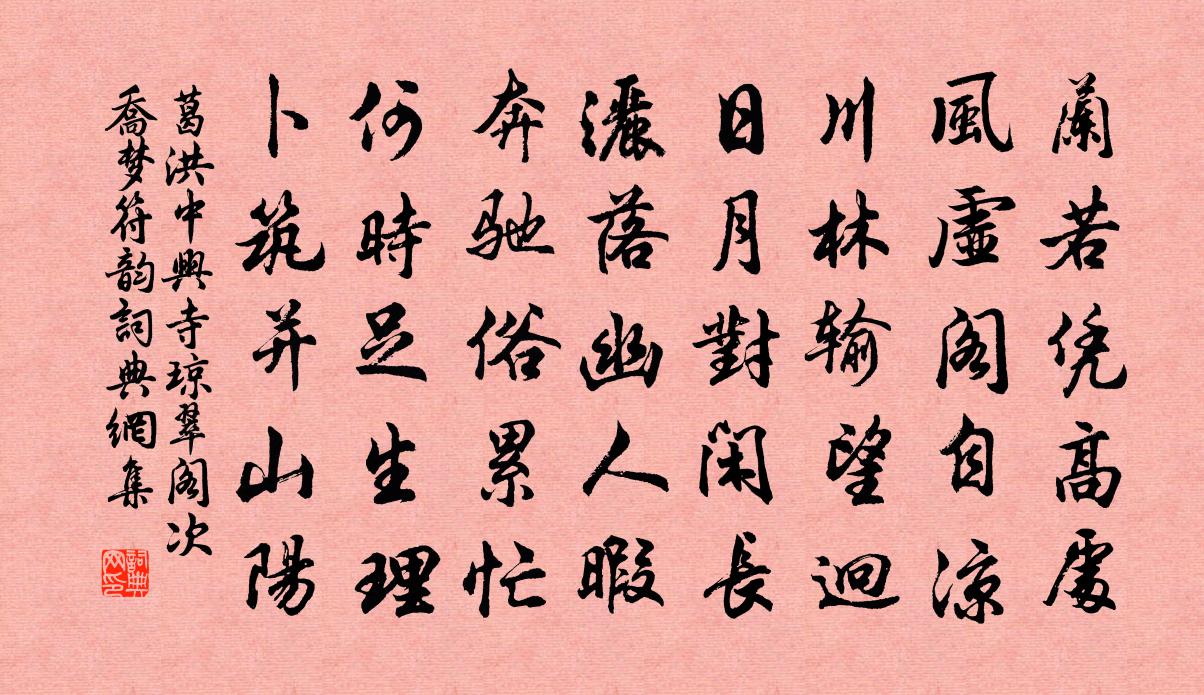 蘭若凭高處
風虛閣自涼
川林输望迥
日月對閑長
灑落幽人暇
奔驰俗累忙
何時足生理
卜筑并山陽
葛洪中興寺琼翠阁次
喬梦符韵詞典網集
詞典
网印